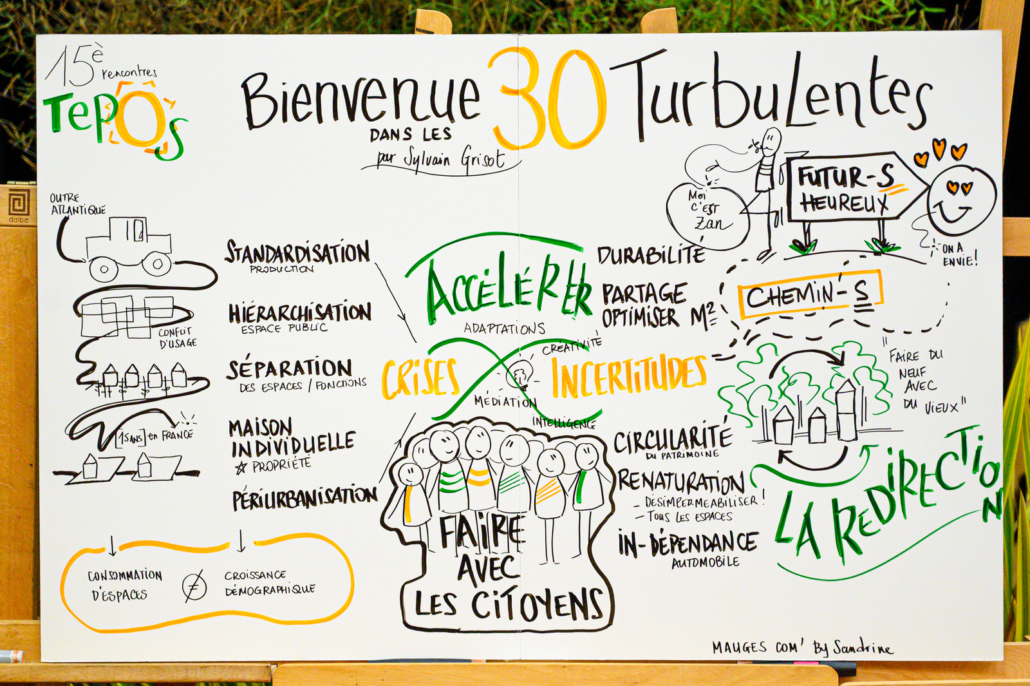 15è
rencontres
TEPOS
Bienvenue 30 Turbulentes
DANS LES
par Sylvain Grisot
OUTRE
ATLANTIQUE
CONFLIT
D'USAGE
[15 ANS] en FRANCE
STANDARDISATION
PRODUCTION
HIÉRARCHISATION
ESPACE PUBLIC
SÉPARATION
DES ESPACES / FONCTIONS
MAISON
INDIVIDUELLE
☆ PROPRIÉTÉ
PÉRIURBANISATION
CONSOMMATION
D'ESPACES
≠
CROISSANCE
DÉMOGRAPHIQUE
ACCÉLÉRER
ADAPTATIONS
CRÉATIVITÉ
CRISES
INCERTITUDES
MÉDIATION
INTELLIGENCE
FAIRE
AVEC
LES CITOYENS
DURABILITÉ
PARTAGE
OPTIMISER M²
CIRCULARITÉ
DU PATRIMOINE
RENATURATION
- DÉSIMPERMEABILISER !
- TOUS LES ESPACES
IN-DÉPENDANCE
AUTOMOBILE
MOI
C'EST
Zan
FUTUR-S
HEUREUX
ON A
ENVIE !
CHEMIN-S
"FAIRE DU
NEUF
AVEC
DU VIEUX"
LA REDIRECTION
MAUGES COM' By Sandrine
dalbe